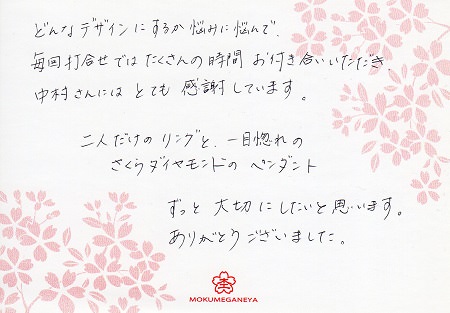 どんなデザインにするか悩みに悩んで、
毎回打合せではたくさんの時間お付き合いいただき
中村さんにはとても感謝しています。
二人だけのリングと、一目惚れの
さくらダイヤモンドのペンダント
ずっと大切にしたいと思います。
ありがとうございました。
MOKUMEGANEYA